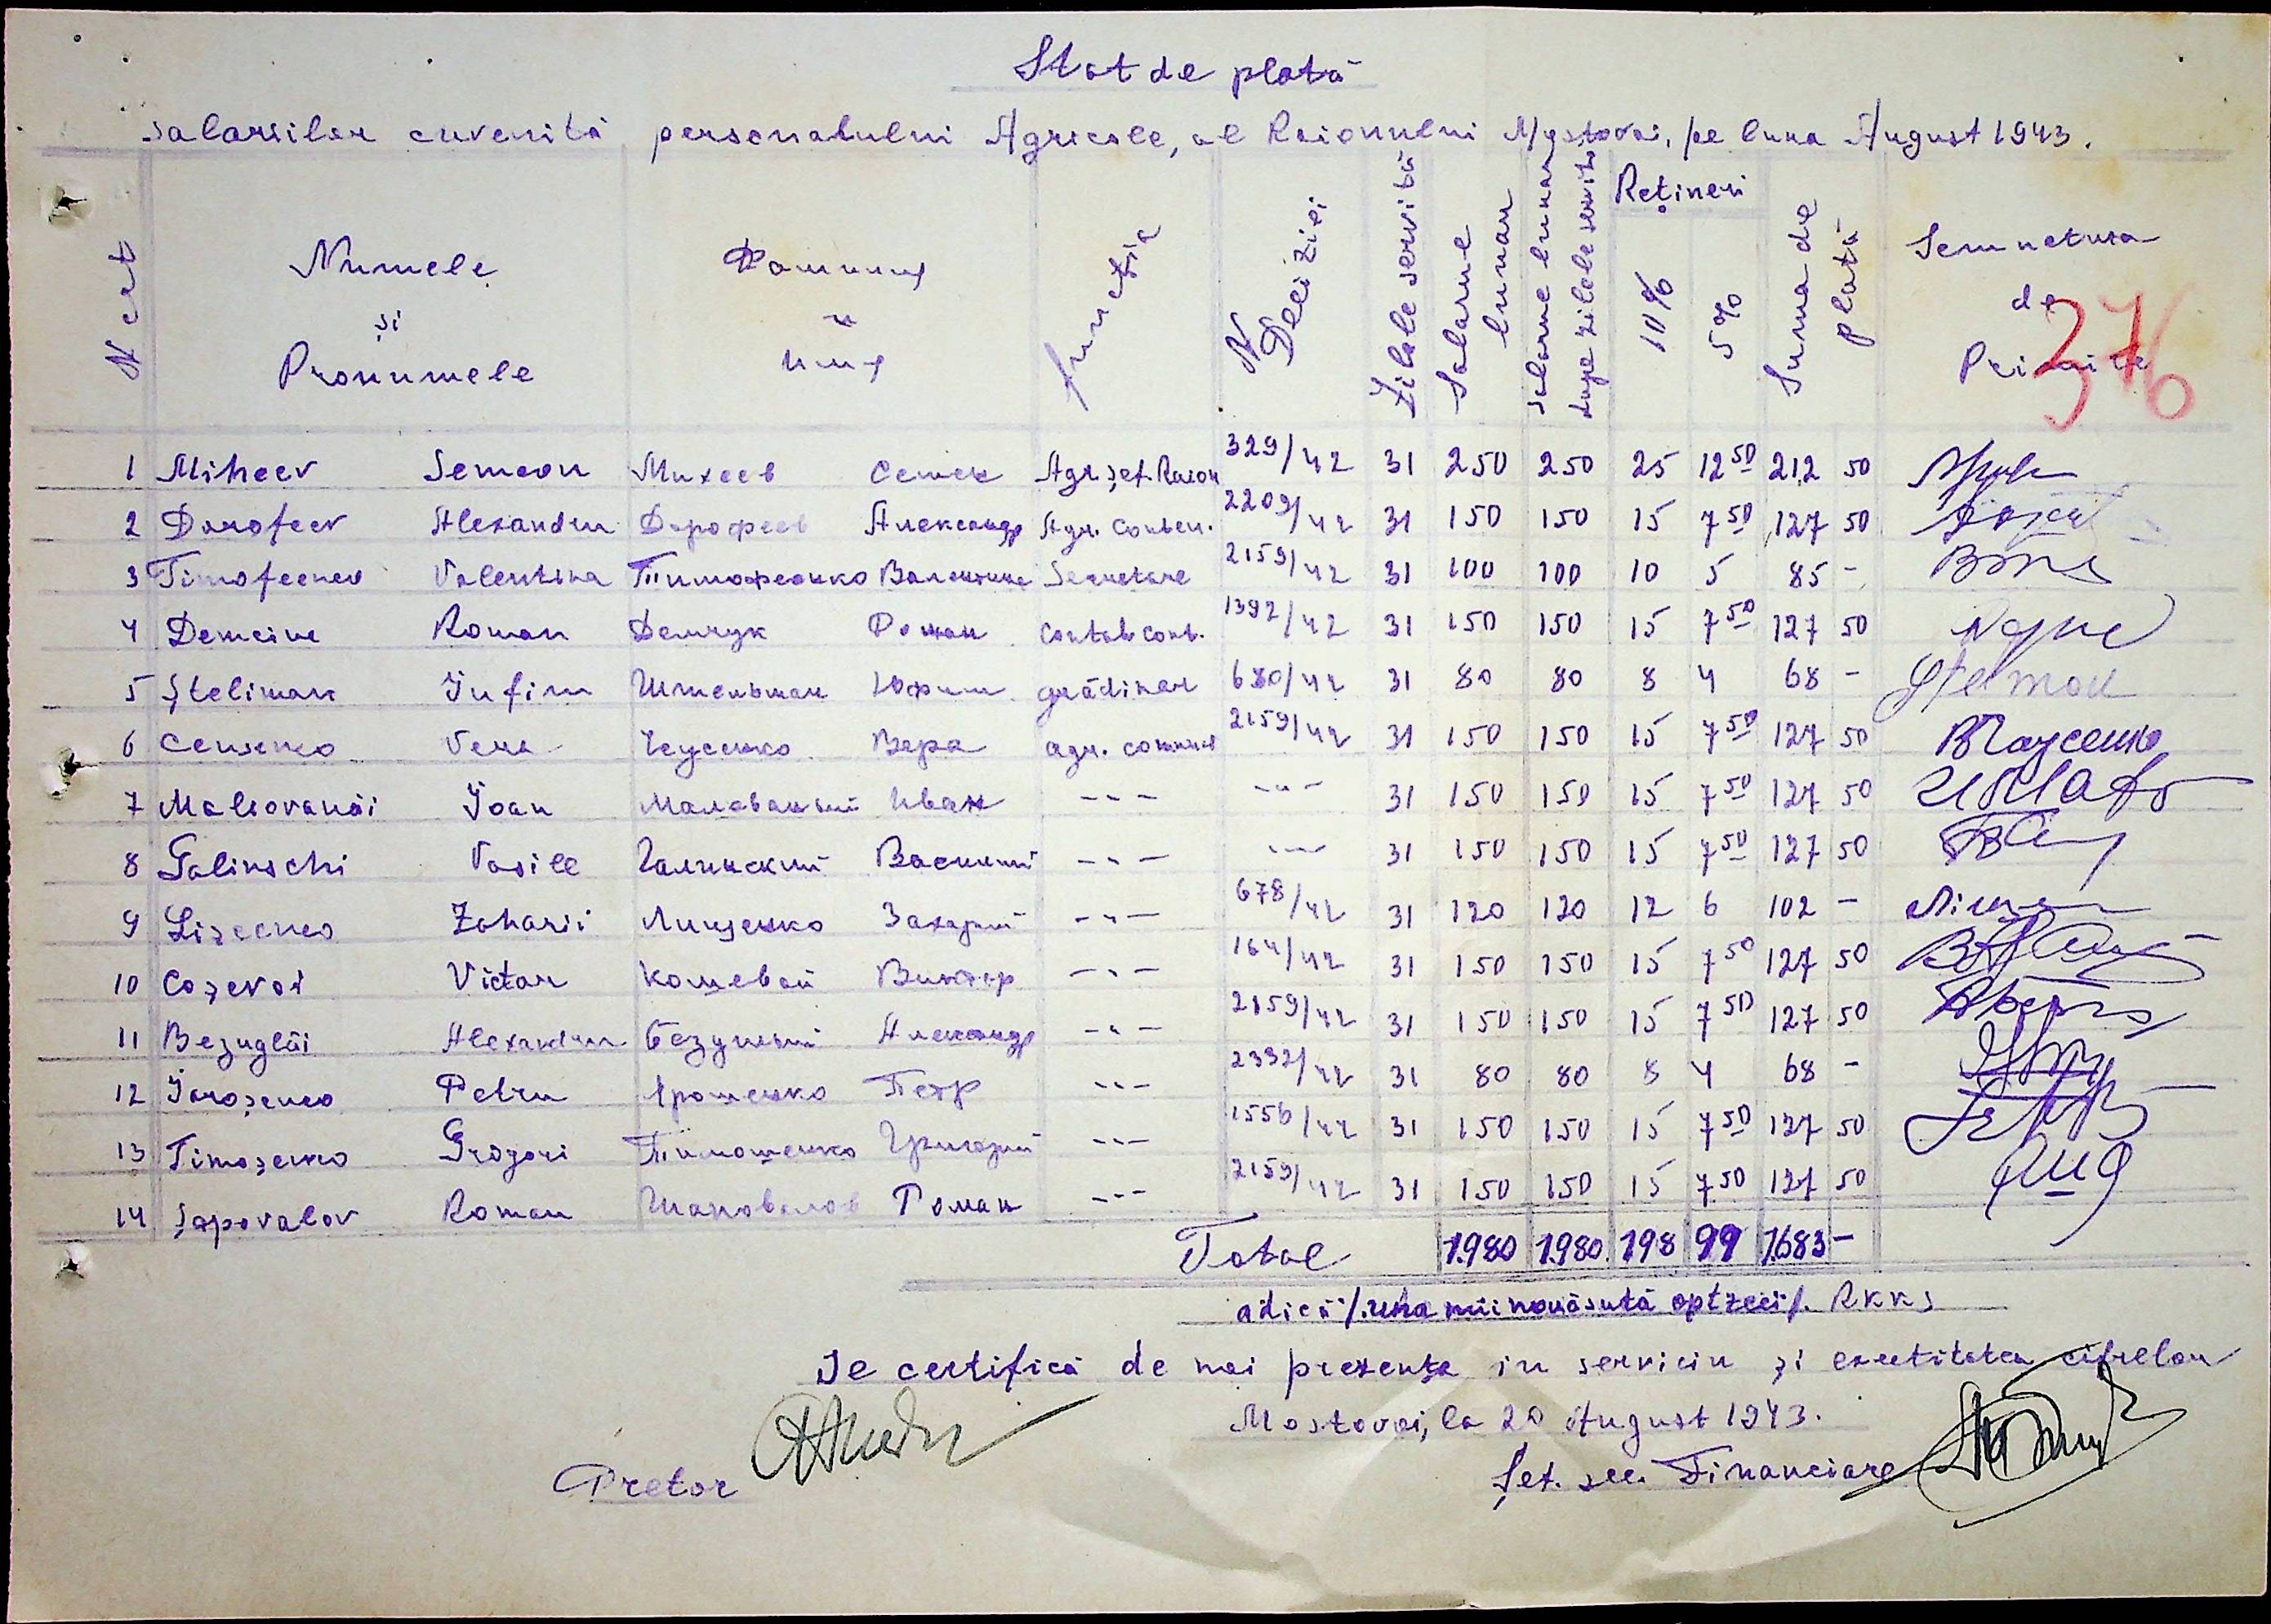 Stat de plată
salariilor cuvenită personalului Agricole, al Raionului Mostovoi, pe luna August 1943.
N crt
Numele și Pronumele
Фамилия и имя
functia
N Deciziei
Zilele servite
Salarue lunar
Salarue lunar dupe zilele servite
Rețineri
10% 5%
Suma de plată
Semnetura de Primire
376
1 Miheev Semeon Михеев Семен Agr. șef. Raion 329/42 31 250 250 25 12 50 212 50
2 Dorofeev Alexandru Дорофеев Александр Agr. Conten. 2209/42 31 150 150 15 7 50 127 50
3 Timofeenco Valentina Тимофеенко Валентина Secretare 2159/42 31 100 100 10 5 85 -
4 Demciuc Roman Демчук Роман Contab cont. 1392/42 31 150 150 15 7 50 127 50
5 Șteliman Iufim Штельман Юфим grădinar 680/42 31 80 80 8 4 68 -
6 Ceusenco Vera Чеусенко Вера agr. comunal 2159/42 31 150 150 15 7 50 127 50
7 Maliovanâi Ioan Малеваный Иван -"- -"- 31 150 150 15 7 50 127 50
8 Galinschi Vasile Галинский Василий -"- -"- 31 150 150 15 7 50 127 50
9 Lișcenco Zaharii Лищенко Захарий -"- 678/42 31 120 120 12 6 102 -
10 Coșevoi Victor Кошевой Виктор -"- 164/42 31 150 150 15 7 50 127 50
11 Bezuglâi Alexandru Безуглый Александр -"- 2159/42 31 150 150 15 7 50 127 50
12 Iaroșenco Petru Ярошенко Петр -"- 2332/42 31 80 80 8 4 68 -
13 Timoșenco Grogori Тимошенко Григорий -"- 1556/42 31 150 150 15 7 50 127 50
14 Șapovalov Roman Шаповалов Роман -"- 2159/42 31 150 150 15 7 50 127 50
Total 1.980 1.980 198 99 1.683 -
adică /.una mii nouăsută optzeci/. RKKS
Se certifică de noi prezența in serviciu și exectitatea cifrelor
Mostovoi, la 20 August 1943.
Pretor
Șef. sec. Financiare